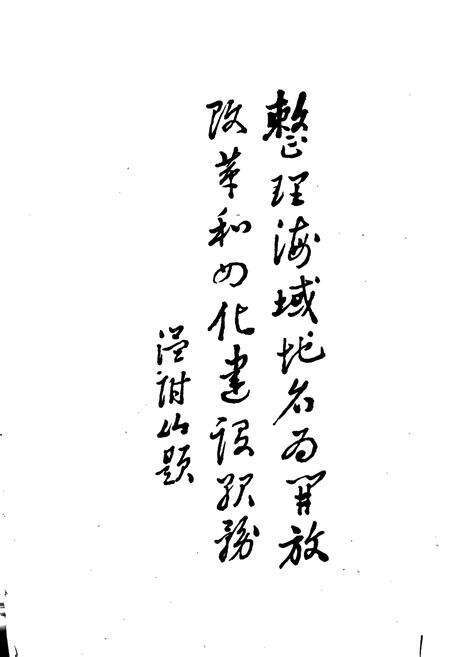 整理海域地名为开放
改革和四化建设服务
温附山题